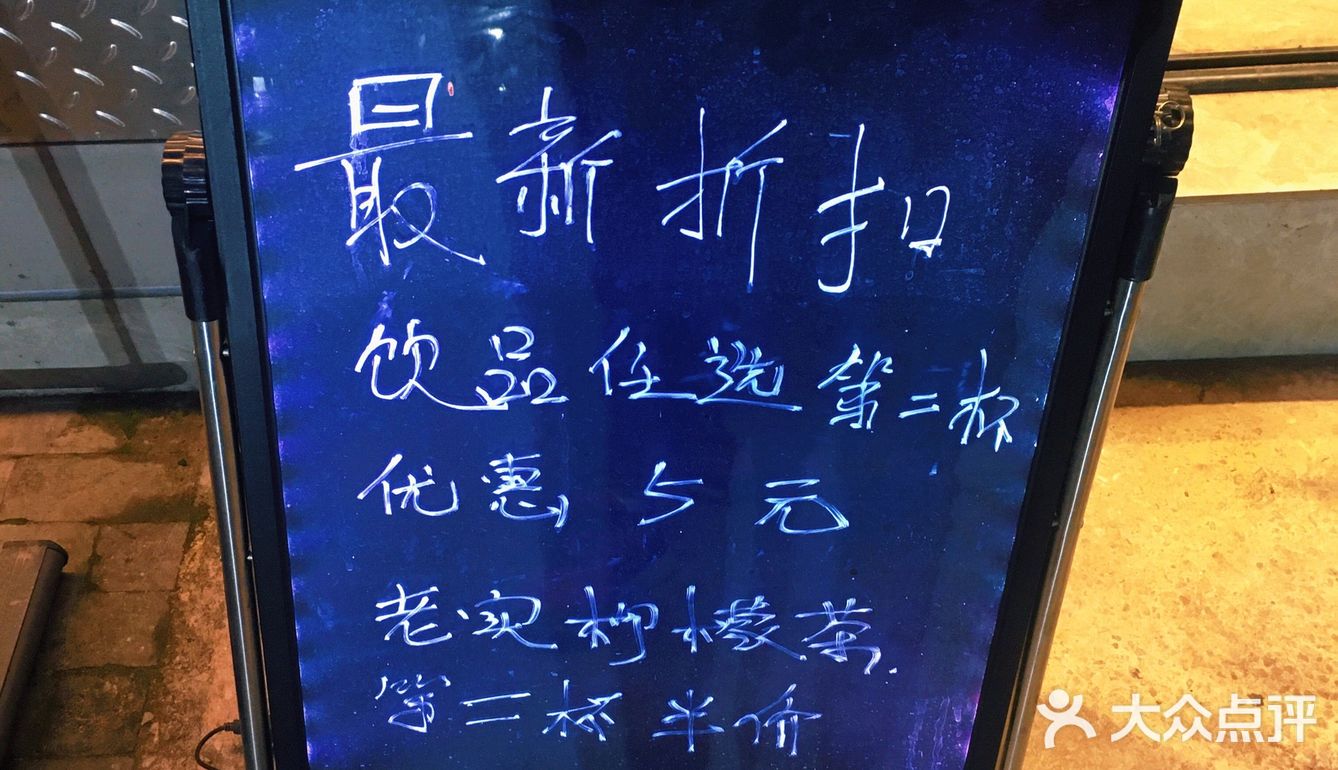 最新折扣
饮品任选第二杯
优惠5元
老实柠檬茶
第二杯半价
大众点评